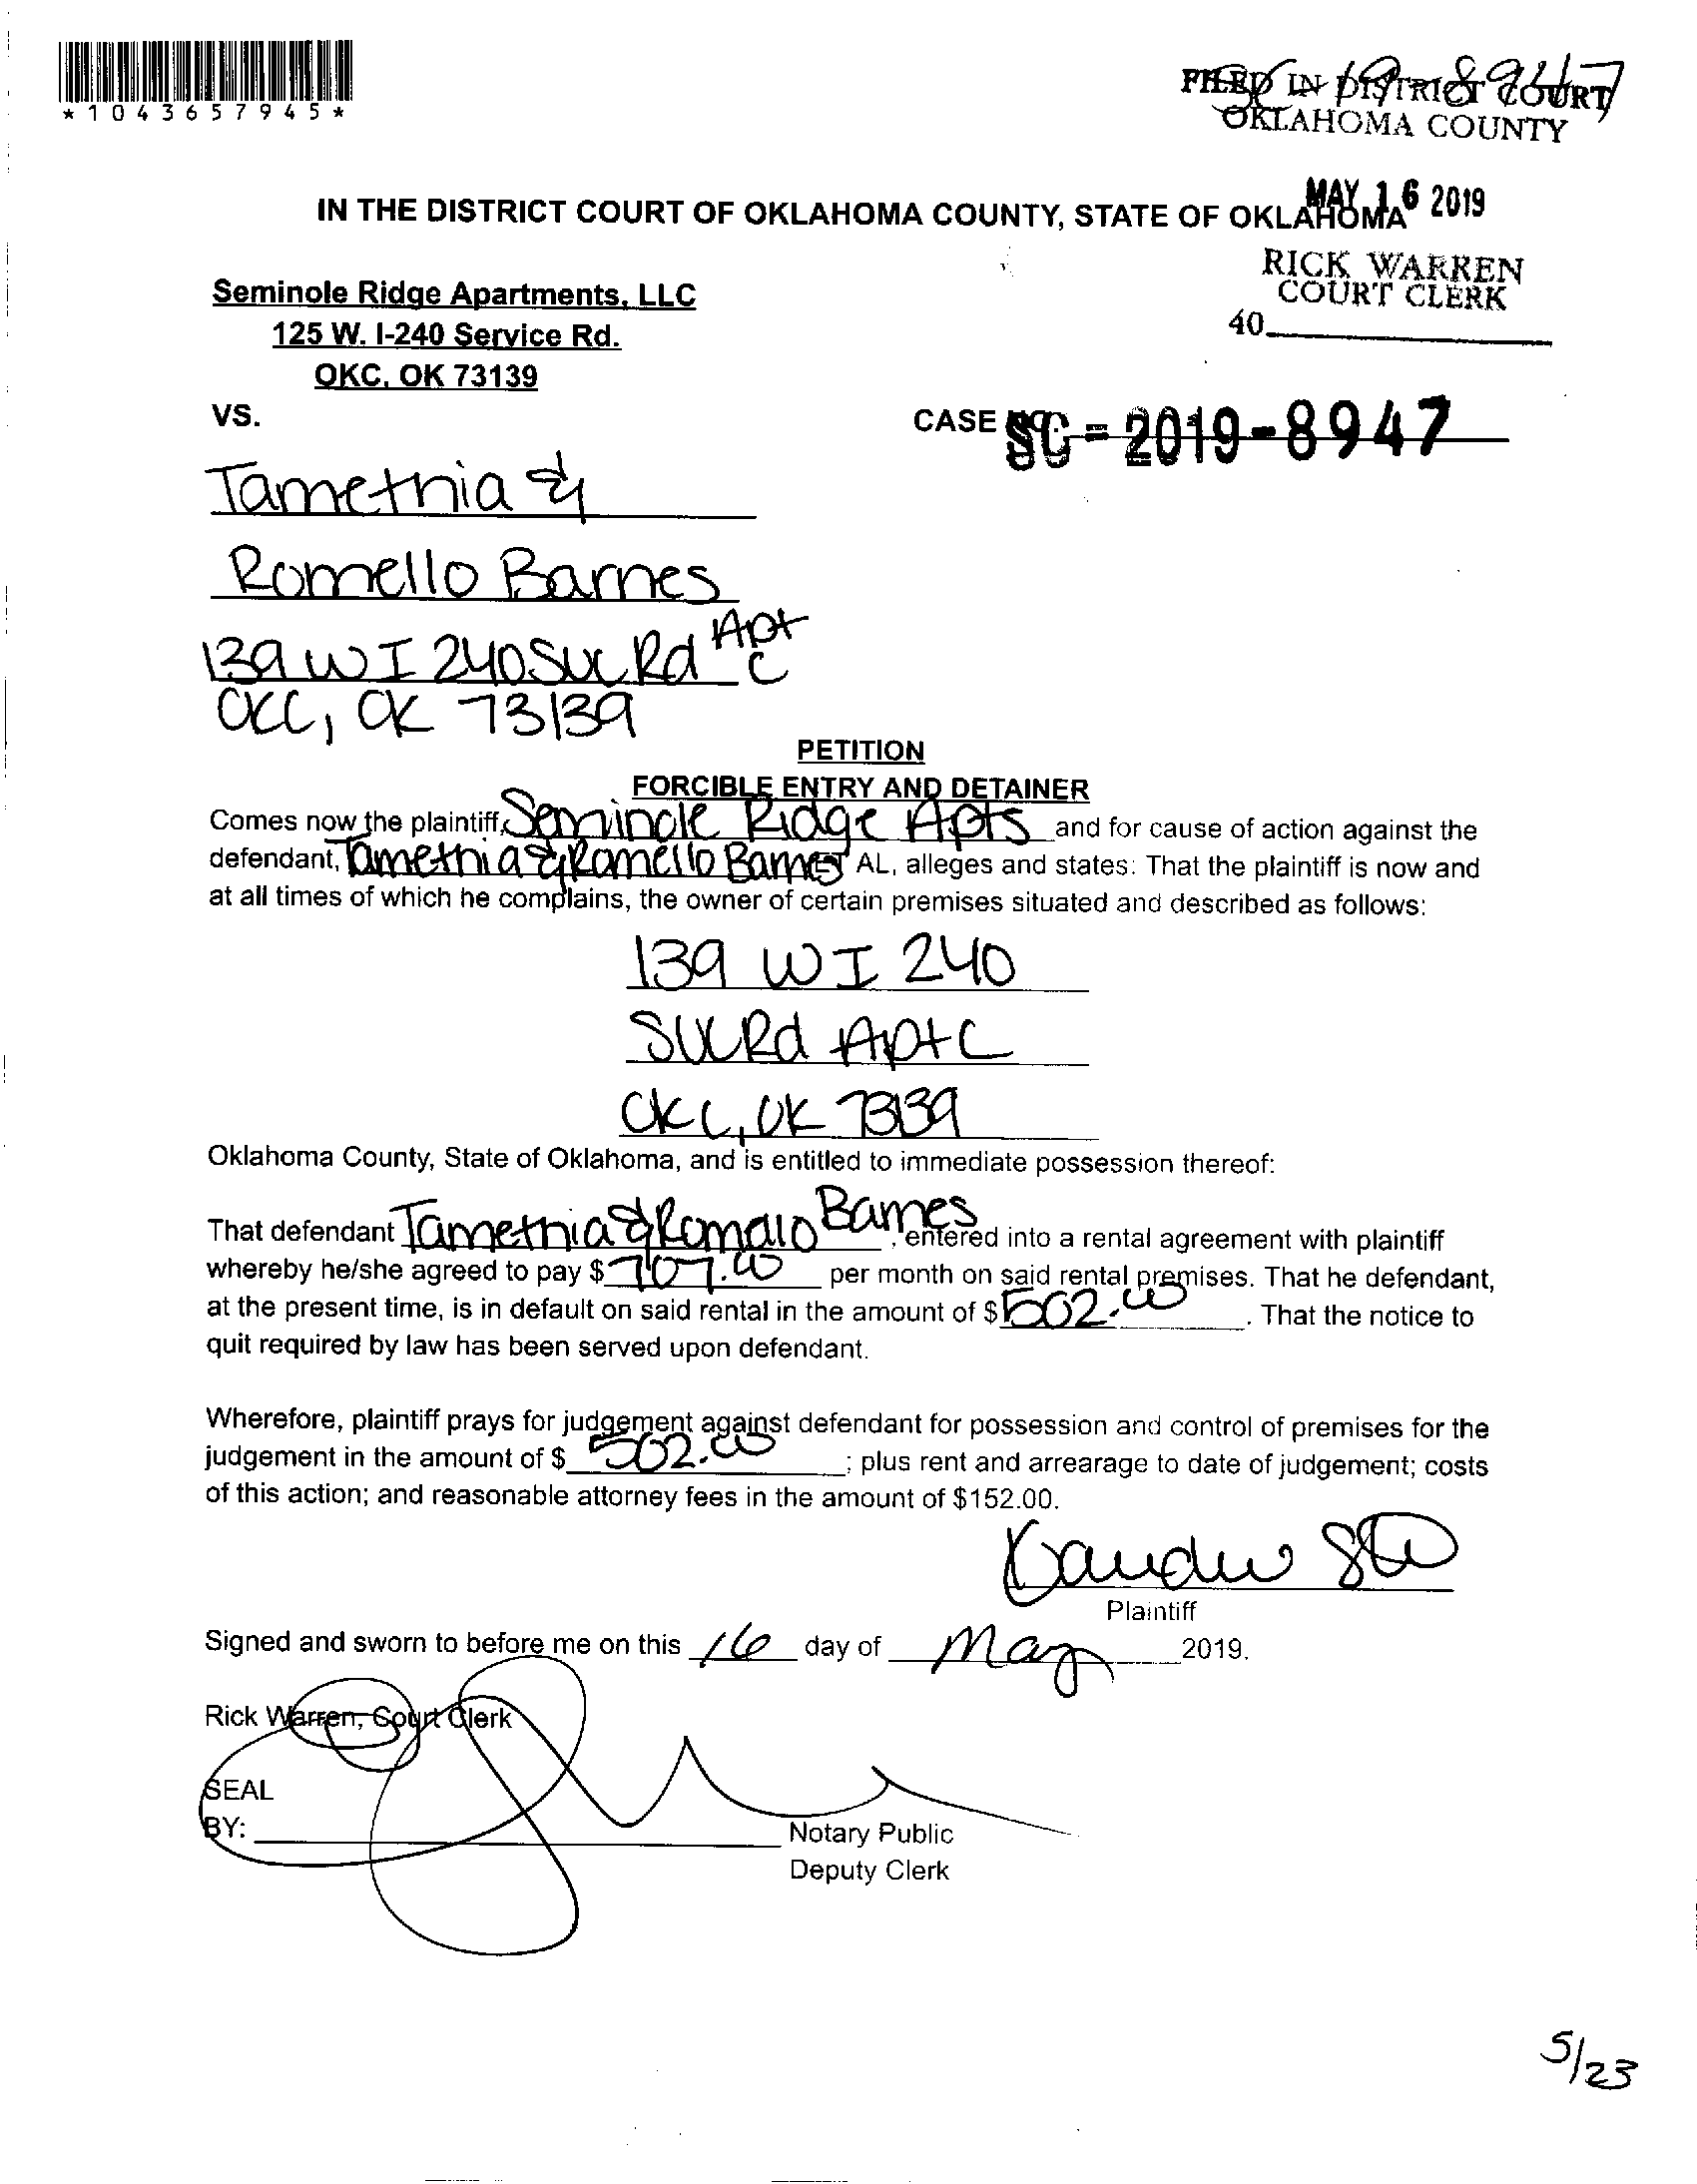 *1043657945*
SC 19 8947
FILED IN DISTRICT COURT
OKLAHOMA COUNTY
MAY 16 2019
IN THE DISTRICT COURT OF OKLAHOMA COUNTY, STATE OF OKLAHOMA
RICK WARREN
COURT CLERK
40
Seminole Ridge Apartments, LLC
125 W. I-240 Service Rd.
OKC, OK 73139
VS.
CASE NO. SC - 2019-8947
Tamethia &
Romello Barnes
139 W I 240 Svc Rd Apt C
OKC, OK 73139
PETITION
FORCIBLE ENTRY AND DETAINER
Comes now the plaintiff, Seminole Ridge Apts and for cause of action against the
defendant, Tamethia & Romello Barnes ET AL, alleges and states: That the plaintiff is now and
at all times of which he complains, the owner of certain premises situated and described as follows:
139 W I 240
SVC Rd Apt C
OKC, OK 73139
Oklahoma County, State of Oklahoma, and is entitled to immediate possession thereof:
That defendant Tamethia & Romalo Barnes, entered into a rental agreement with plaintiff
whereby he/she agreed to pay $ 707.00 per month on said rental premises. That he defendant,
at the present time, is in default on said rental in the amount of $ 502.00. That the notice to
quit required by law has been served upon defendant.
Wherefore, plaintiff prays for judgement against defendant for possession and control of premises for the
judgement in the amount of $ 502.00; plus rent and arrearage to date of judgement; costs
of this action; and reasonable attorney fees in the amount of $152.00.
Plaintiff
Signed and sworn to before me on this 16 day of May 2019.
Rick Warren, Court Clerk
SEAL
BY: Notary Public
Deputy Clerk
5/23